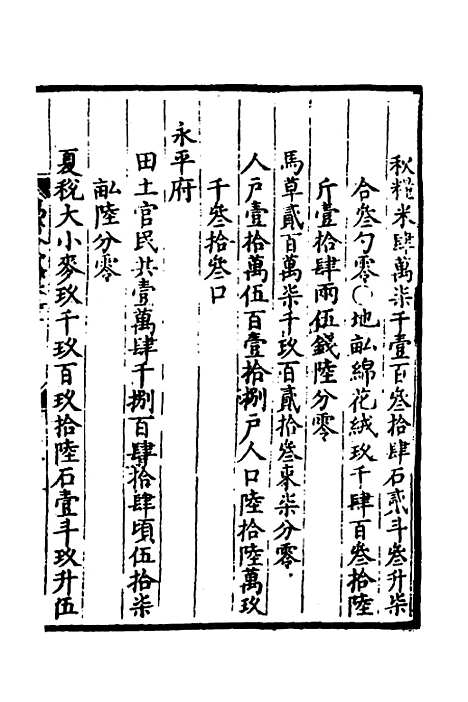 秋糧米肆萬柒千壹百叁拾肆石貳斗叁升柒
合叁勺零○地畝綿花絨玖千肆百叁拾陸
斤壹拾肆兩伍錢陸分零
馬草貳百萬柒千玖百貳拾叁束柒分零
人戶壹拾萬伍百壹拾捌戶人口陸拾陸萬玖
千叁拾叁口
永平府
田土官民共壹萬肆千捌百肆拾肆頃伍拾柒
畝陸分零
夏稅大小麥玖千玖百玖拾陸石壹斗玖升伍